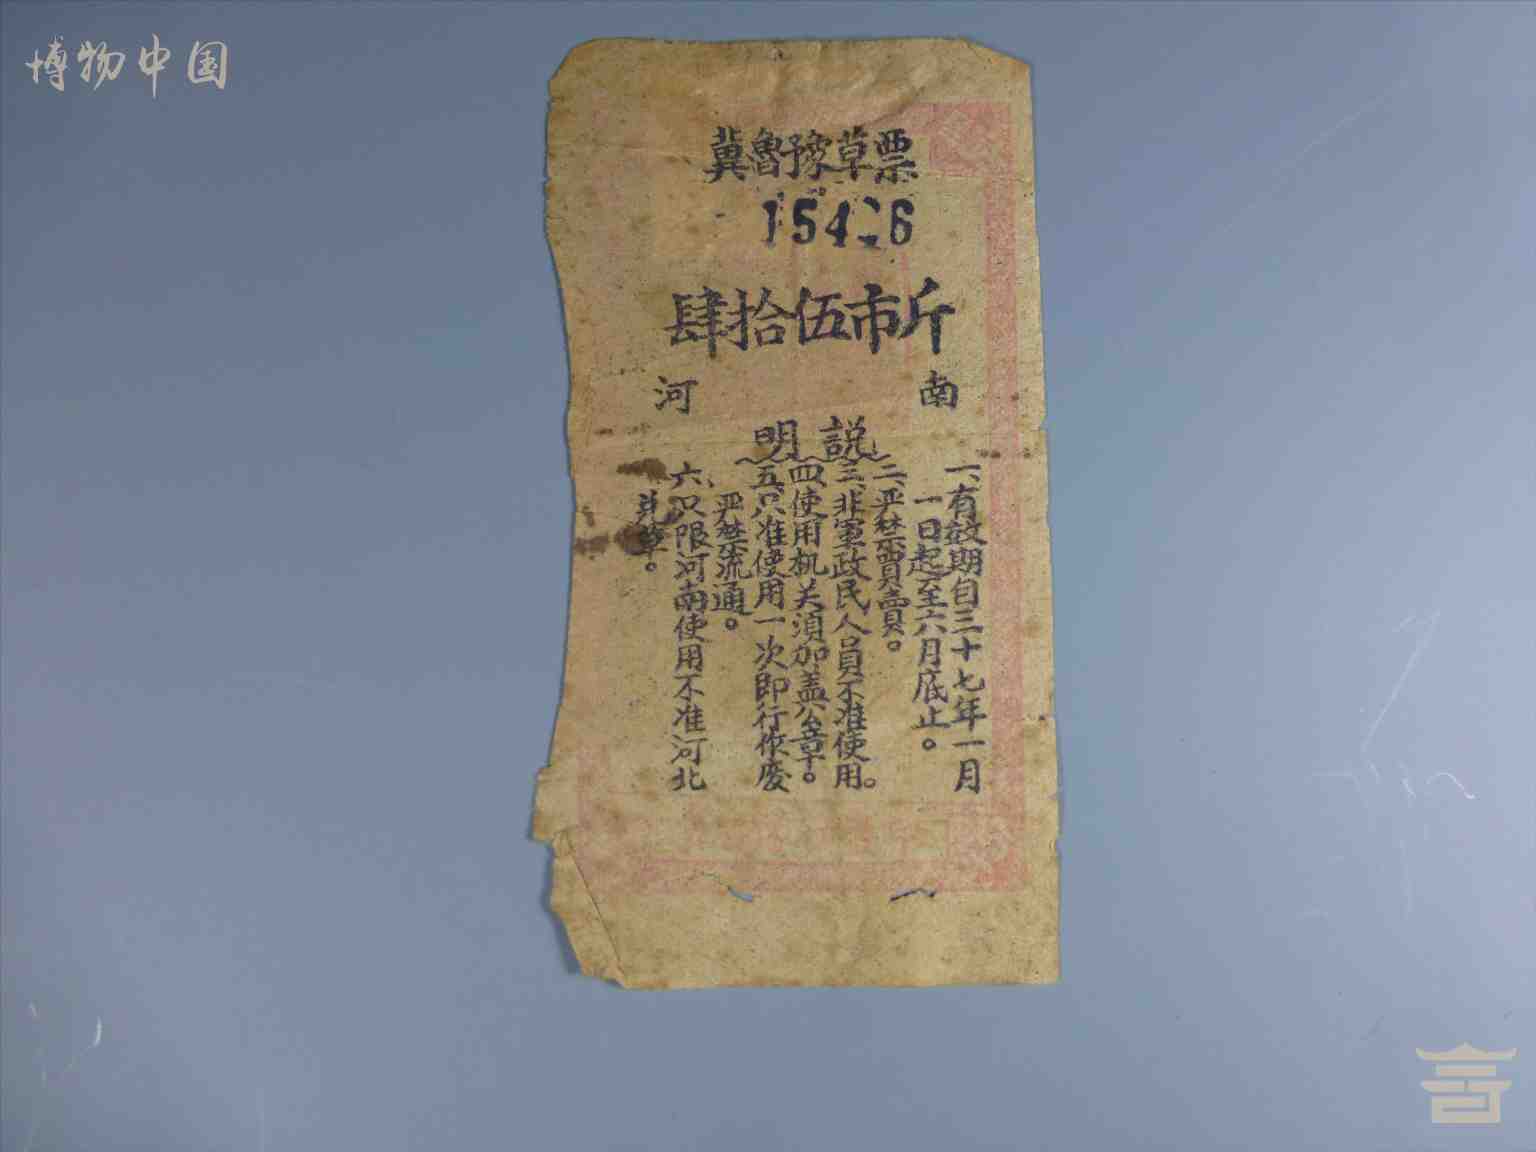 博物中国
冀魯豫草票
肆拾伍市斤
河 南
説明
一、有效期自三十七年一月
一日起至六月底止。
二、严禁買賣。
三、非軍政民人員不准使用。
四、使用机关須加盖公章。
五、只准使用一次即行作廢
严禁流通。
六、只限河南使用不准河北
草。